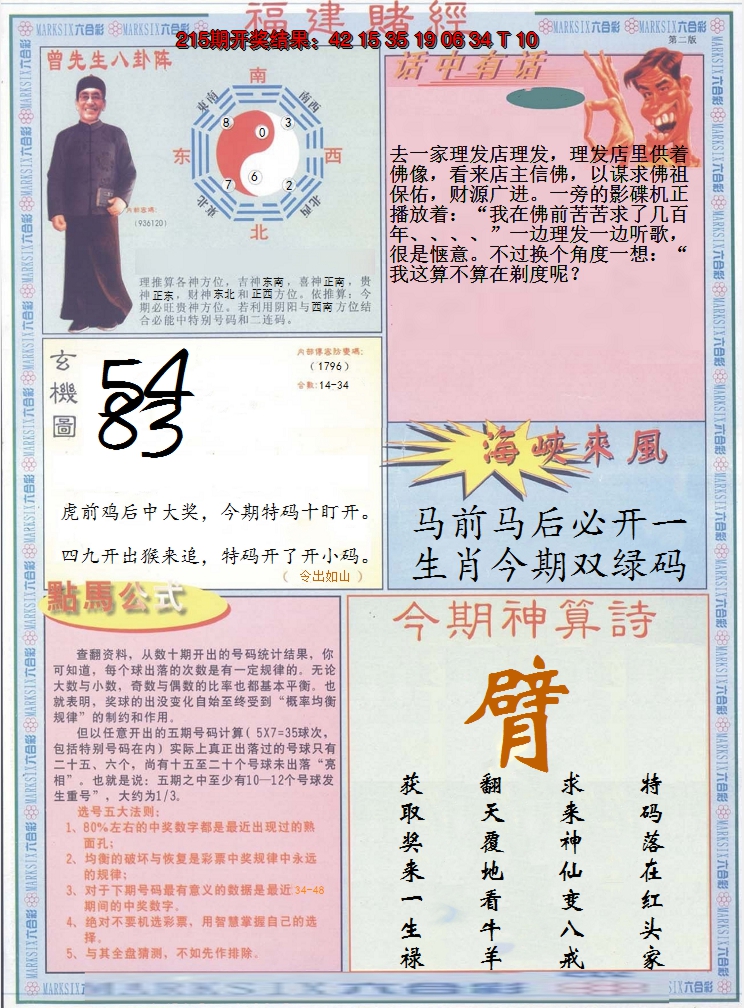 福建賭經
215期开奖结果：42 15 35 19 06 34 T 10
MARKSIX六合彩
第二版
曾先生八卦阵
南
东南
南西
8
0
3
东
西
7
6
2
東北
北西
北
内部密碼:
(936120)
理推算各神方位，吉神东南，喜神正南，贵
神正东，财神东北和正西方位。依推算：今
期必旺贵神方位。若利用阴阳与西南方位结
合必能中特别号码和二连码。
话中有话
去一家理发店理发，理发店里供着
佛像，看来店主信佛，以谋求佛祖
保佑，财源广进。一旁的影碟机正
播放着：“我在佛前苦苦求了几百
年、、、、”一边理发一边听歌，
很是惬意。不过换个角度一想：“
我这算不算在剃度呢？
玄機圖
54
83
内部傳密防密碼:
(1796)
合数:14-34
虎前鸡后中大奖，今期特码十盯开。
四九开出猴来追，特码开了开小码。
（ 令出如山 ）
海峽來風
马前马后必开一
生肖今期双绿码
點馬公式
查翻资料，从数十期开出的号码统计结果，你
可知道，每个球出落的次数是有一定规律的。无论
大数与小数，奇数与偶数的比率也都基本平衡。也
就表明，奖球的出没变化自始至终受到“概率均衡
规律”的制约和作用。
但以任意开出的五期号码计算( 5X7=35球次,
包括特别号码在内) 实际上真正出落过的号球只有
二十五、六个，尚有十五至二十个号球未出落“亮
相”。也就是说：五期之中至少有10—12个号球发
生重号”，大约为1/3。
选号五大法则:
1、80%左右的中奖数字都是最近出现过的熟
面孔;
2、均衡的破坏与恢复是彩票中奖规律中永远
的规律;
3、对于下期号码最有意义的数据是最近34-48
期间的中奖数字。
4、绝对不要机选彩票，用智慧掌握自己的选
择。
5、与其全盘猜测，不如先作排除。
今期神算詩
臂
特码落在红头家
求来神仙变八戒
翻天覆地看牛羊
获取奖来一生禄